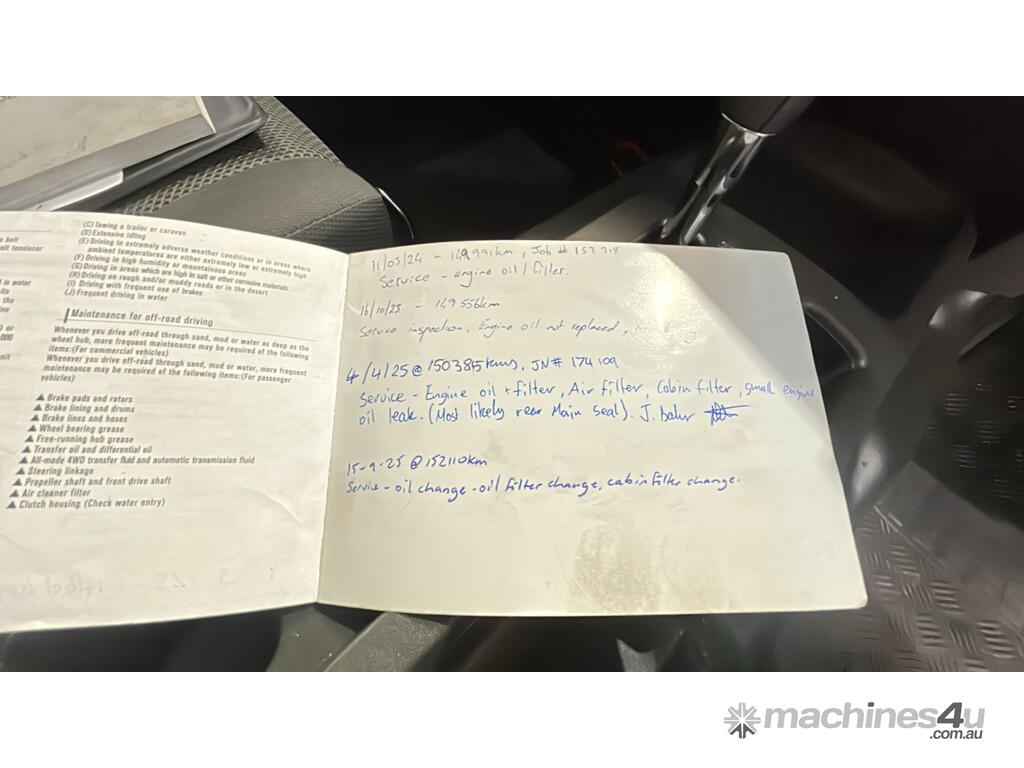 (C) Towing a trailer or caravan
(D) Extensive idling
(E) Driving in extremely adverse weather conditions or in areas where
ambient temperatures are either extremely low or extremely high
(F) Driving in high humidity or mountainous areas
(G) Driving in areas which are high in salt or other corrosive materials
(H) Driving on rough and/or muddy roads or in the desert
(I) Driving with frequent use of brakes
(J) Frequent driving in water
Maintenance for off-road driving
Whenever you drive off-road through sand, mud or water as deep as the
wheel hub, more frequent maintenance may be required of the following
items:(For commercial vehicles)
Whenever you drive off-road through sand, mud or water, more frequent
maintenance may be required of the following items:(For passenger
vehicles)
▲ Brake pads and rotors
▲ Brake lining and drums
▲ Brake lines and hoses
▲ Wheel bearing grease
▲ Free-running hub grease
▲ Transfer oil and differential oil
▲ All-mode 4WD transfer fluid and automatic transmission fluid
▲ Steering linkage
▲ Propeller shaft and front drive shaft
▲ Air cleaner filter
▲ Clutch housing (Check water entry)
belt
belt tensioner
in water
its
the
or
000
unit
11/03/24 - km, Job # 157918
Service - engine oil / filter.
- 149556km
Service inspection, Engine oil not replaced,
4/4/25 @ 150385kms, JN# 174109
Service - Engine oil + filter, Air filter, Cabin filter, small engine
oil leak. (Most likely rear Main seal). J.
@ 152110km
Service - oil change - oil filter change, cabin filter change.
machines4u
.com.au